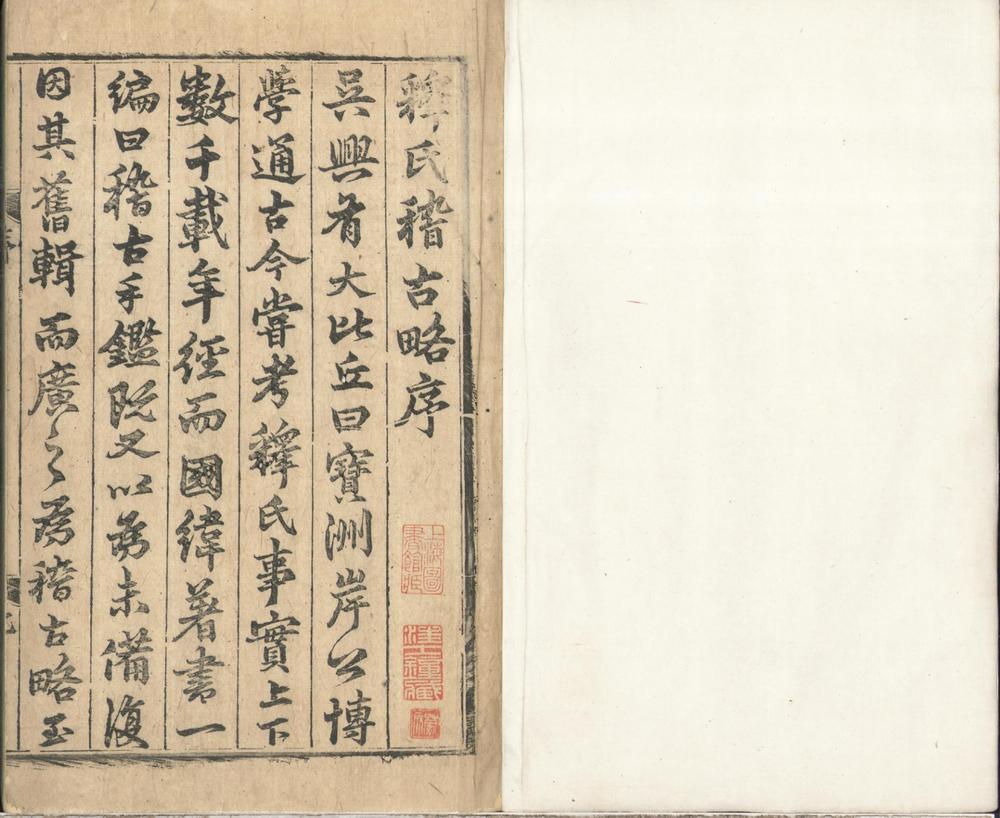 釋氏稽古略序
吳興有大比丘曰寶洲岸公博
學通古今嘗考釋氏事實上下
數千載年經而國緯著書一
編曰稽古手鑑既又以為未備復
因其舊輯而廣之為稽古略至
上海圖
書館藏